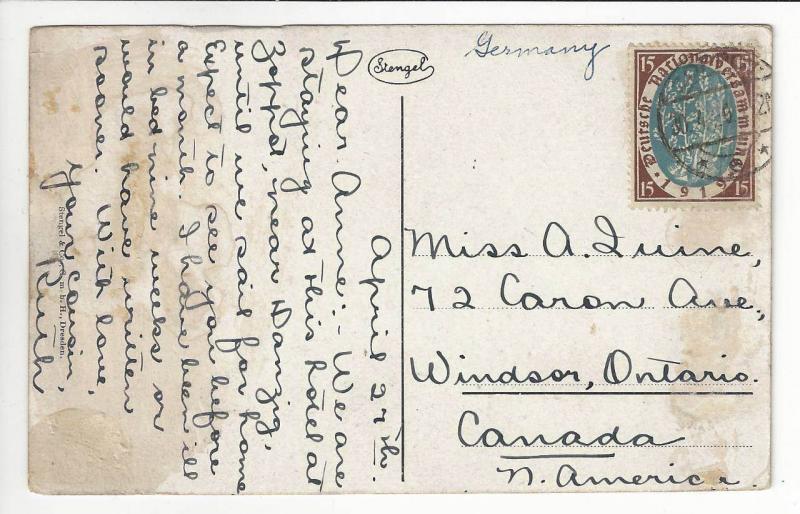 Stengel
Germany
15 15
Deutsche Nationalversammlung
1919
15 15
April 27th.
Dear Anne:- We are
staying at this hotel at
Zoppot, near Danzig,
until we sail for home
Expect to see you before
a month. I have been ill
in bed nine weeks or
would have written
sooner. With love,
your cousin,
Ruth
Miss A. Quine,
72 Caron Ave,
Windsor, Ontario.
Canada
N. America.
Stengel & Co., G. m. b. H., Dresden.